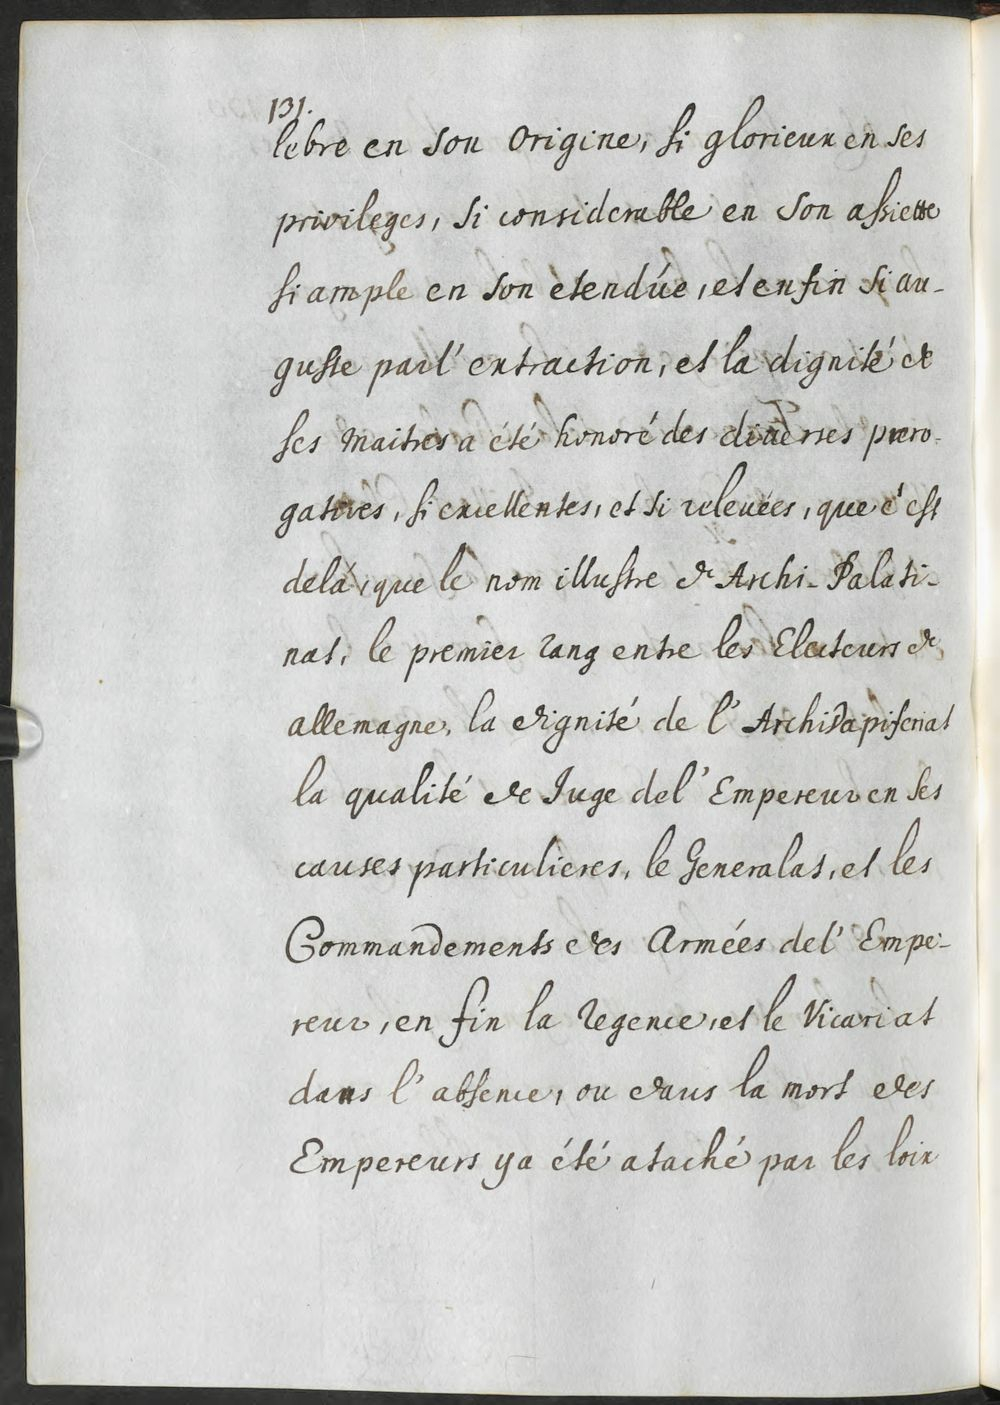 131.
lebre en son origine, si glorieux en ses
privileges, si considerable en son assiette
si ample en son étendúe, et enfin si au-
guste par l'extraction, et la dignité de
ses maitres a été honoré des diverses prero-
gatives, si excellentes, et si relevées, que c'est
delá, que le nom illustre de Archi-Palati-
nat, le premier rang entre les Electeurs de
allemagne, la dignité de l'Archidapiferiat
la qualité de Iuge del'Empereur en ses
causes particulieres, le Generalat, et les
Commandements des Armées del'Empe-
reur, en fin la regence, et le Vicariat
dans l'absence, ou dans la mort des
Empereurs y a été ataché par les loix